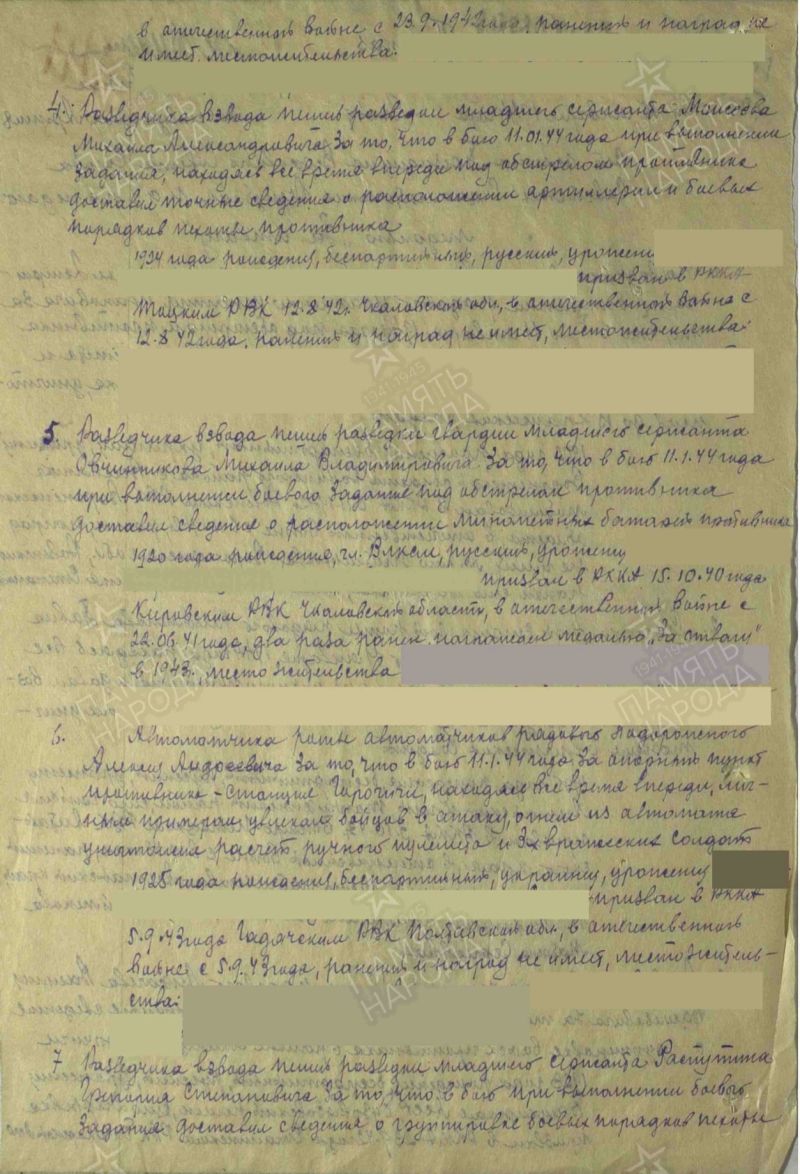 в отечественной войне с 23.9.1942 года, ранений и наград не
имеет, местожительства:
4. Разведчика взвода пешей разведки младшего сержанта Моисеева
Михаила Александровича за то, что в бою 11.01.44 года при выполнении
задания, находясь все время впереди под обстрелом противника
доставил точные сведения о расположении артиллерии и боевых
порядков пехоты противника
1924 года рождения, беспартийный, русский, уроженец
призван в РККА
Тоцким РВК 12.8.42г. Чкаловской обл, в отечественной войне с
12.8.42 года, ранений и наград не имеет, местожительства:
5. Разведчика взвода пешей разведки гвардии младшего сержанта
Овчинникова Михаила Владимировича за то, что в бою 11.1.44 года
при выполнении боевого задания под обстрелом противника
доставил сведения о расположении минометных батарей противника
1920 года рождения, чл. ВЛКСМ, русский, уроженец
призван в РККА 15.10.40 года
Кировским РВК Чкаловской области, в отечественной войне с
22.06.41 года, два раза ранен, награжден медалью "За отвагу"
в 1943г, место жительства
6. Автоматчика роты автоматчиков рядового
Алексея Андреевича за то, что в бою 11.1.44 года за опорный пункт
противника – станцию находясь все время впереди, лич-
ным примером увлекал бойцов в атаку, огнем из автомата
уничтожил расчет ручного пулемета и 3х вражеских солдат
1925 года рождения, беспартийный, украинец, уроженец
призван в РККА
5.9.43 года Гадячским РВК Полтавской обл, в отечественной
войне с 5.9.43 года, ранений и наград не имеет, местожитель-
ства:
7 Разведчика взвода пешей разведки младшего сержанта Распутина
Григория Степановича за то, что в бою при выполнении боевого
задания доставил сведения о группировке боевых порядков пехоты
ПАМЯТЬ
НАРОДА
1941 1945